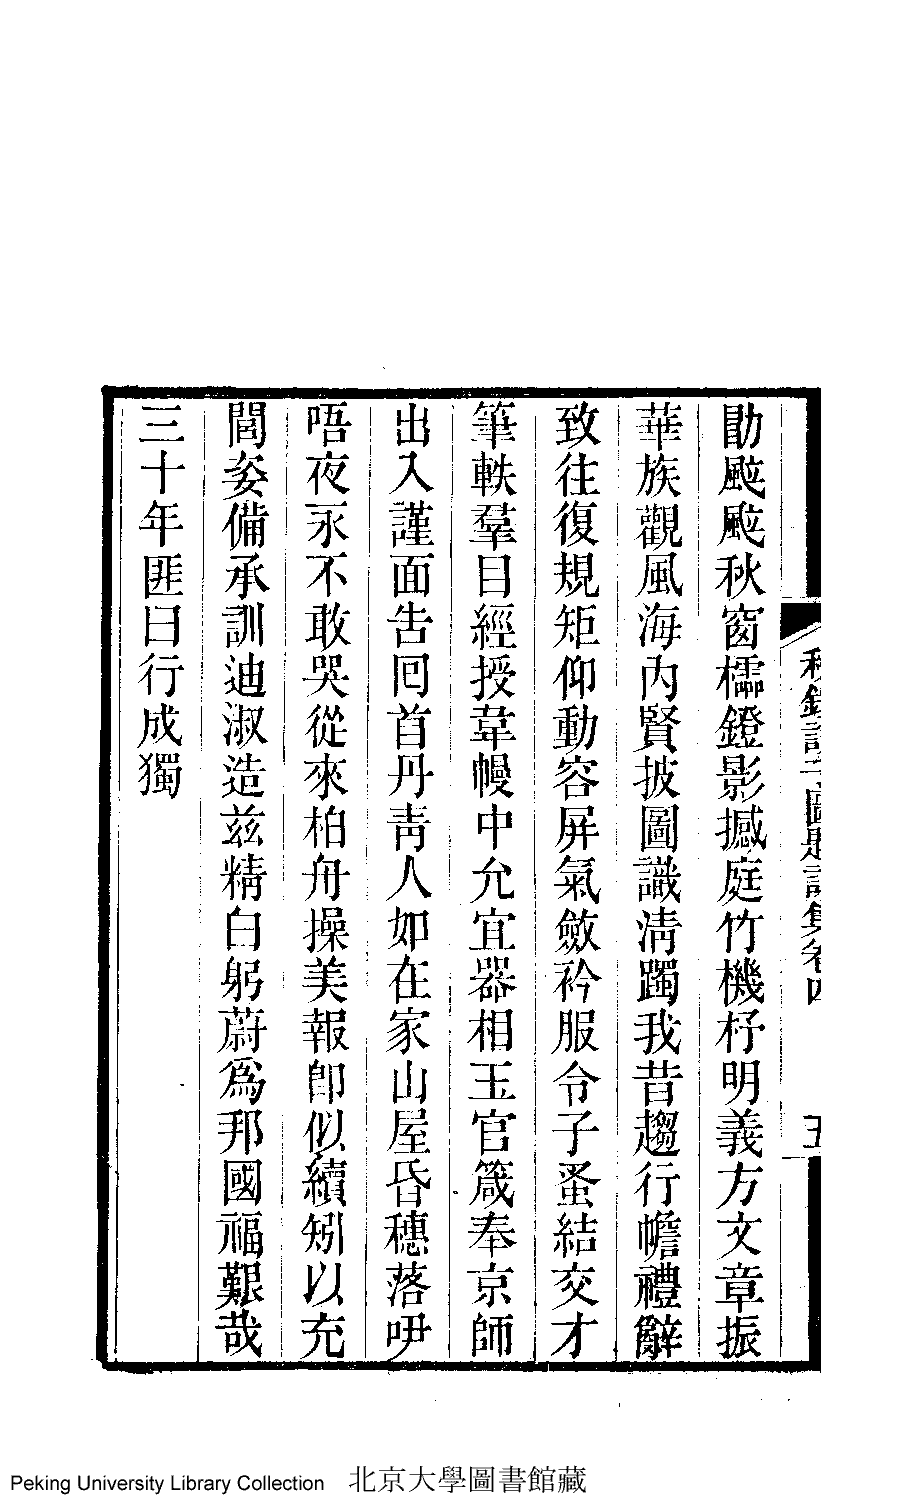 勖飈飈秋窗檽鐙影撼庭竹機杼明義方文章振
華族觀風海內賢披圖識清躅我昔趨行幨禮辭
致往復規矩仰動容屏氣斂衿服令子蚤結交才
筆軼羣目經授韋幔中允宜器相玉官箴奉京師
出入謹面告回首丹靑人如在家山屋昏穗落咿
唔夜永不敢哭從來柏舟操美報卽似續矧以充
閭姿備承訓迪淑造兹精白躬蔚爲邦國福艱哉
三十年匪曰行成獨
秋鐙課子圖題詠集卷四
五
Peking University Library Collection 北京大學圖書館藏